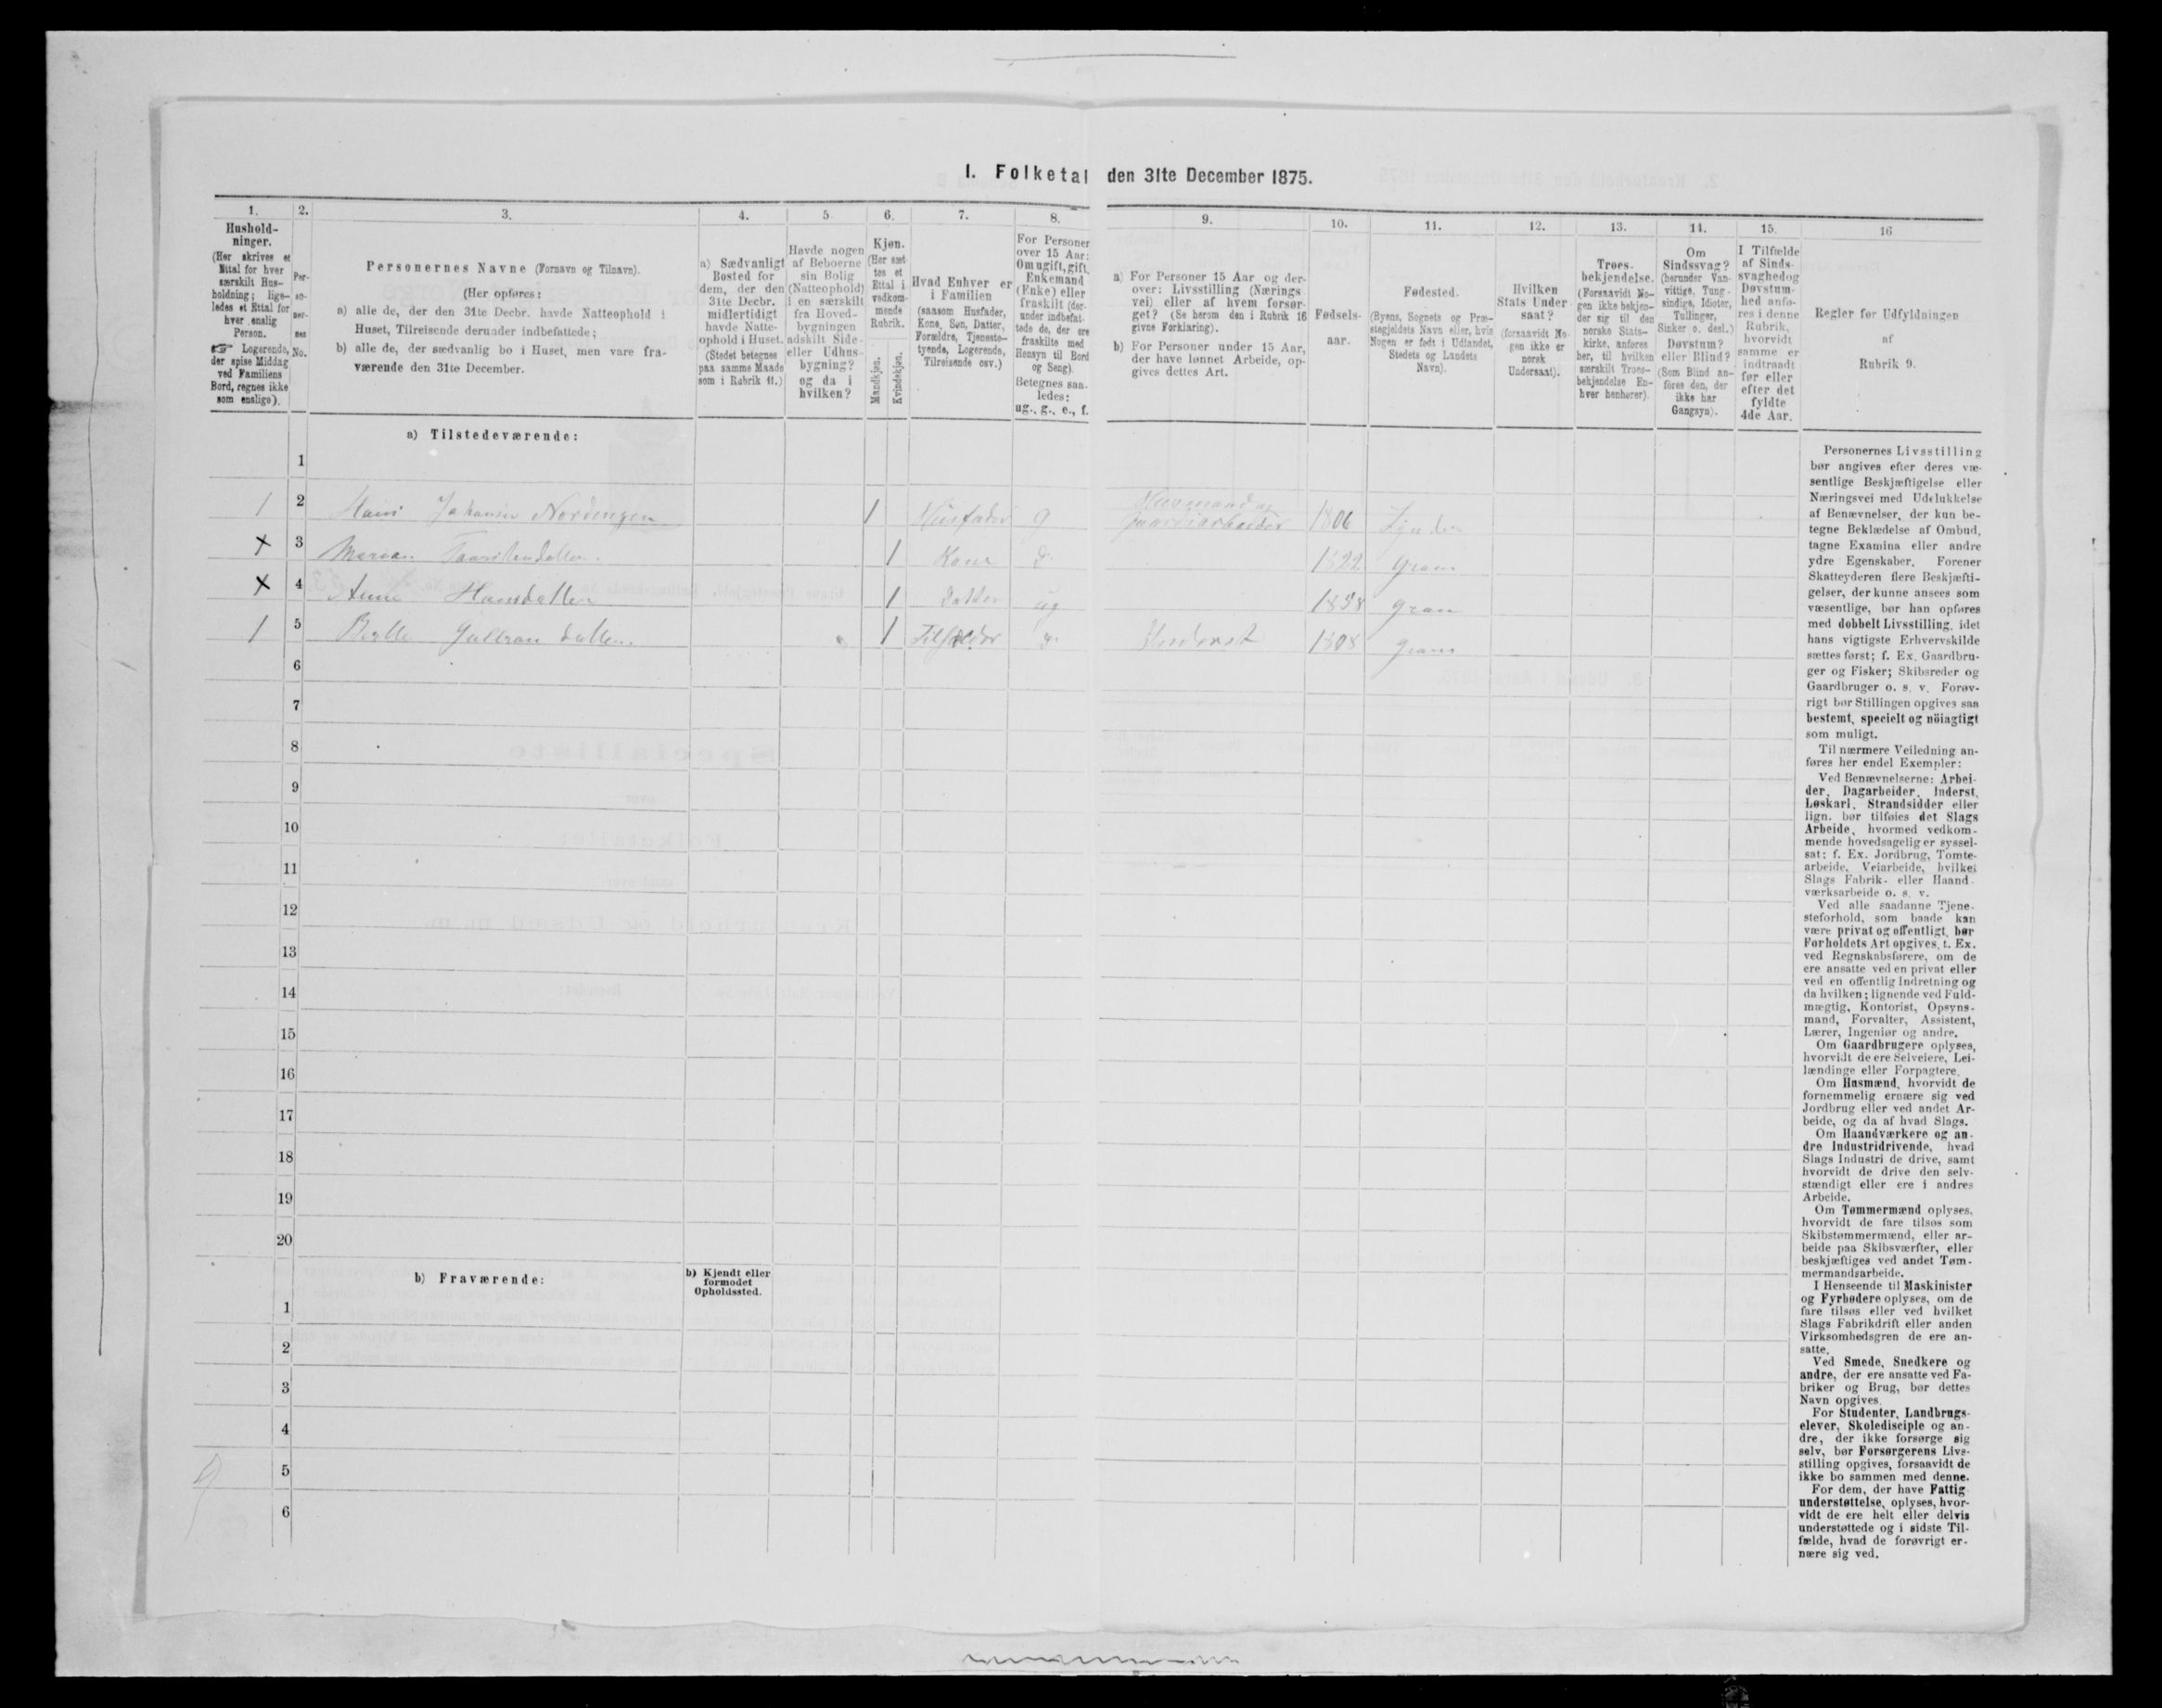 I. Folketal den 31te December 1875.
1.
Hushold-
ninger.
(Her skrives et
Ettal for hver
særskilt Hus-
holdning; lige-
ledes et Ettal for
hver enslig
Person.
☞ Logerende,
der spise Middag
ved Familiens
Bord, regnes ikke
som enslige).
2.
Per-
so-
ner-
nes
No.
3.
Personernes Navne (Fornavn og Tilnavn).
(Her opføres:
a) alle de, der den 31te Decbr. havde Natteophold i
Huset, Tilreisende derunder indbefattede;
b) alle de, der sædvanlig bo i Huset, men vare fra-
værende den 31te December.
4.
a) Sædvanligt
Bosted for
dem, der den
31te Decbr.
midlertidigt
havde Natte-
ophold i Huset.
(Stedet betegnes
paa samme Maade
som i Rubrik 11.)
5
Havde nogen
af Beboerne
sin Bolig
(Natteophold)
i en særskilt
fra Hoved-
bygningen
adskilt Side-
eller Udhus-
bygning?
og da i
hvilken?
6.
Kjøn.
(Her sæt-
tes et
Ettal i
vedkom-
mende
Rubrik.
Mandkjøn.
Kvindekjøn.
7.
Hvad Enhver er
i Familien
(saasom Husfader,
Kone, Søn, Datter,
Forældre, Tjeneste-
tyende, Logerende,
Tilreisende osv.)
8.
For Personer
over 15 Aar:
Om ugift, gift,
Enkemand
(Enke) eller
fraskilt (der-
under indbefat-
tede de, der ere
fraskilte med
Hensyn til Bord
og Seng).
Betegnes saa-
ledes:
ug., g., e., f.
9.
a) For Personer 15 Aar og der-
over: Livsstilling (Nærings-
vei) eller af hvem forsør-
get? (Se herom den i Rubrik 16
givne Forklaring).
b) For Personer under 15 Aar,
der have lønnet Arbeide, op-
gives dettes Art.
10.
Fødsels-
aar.
11.
Fødested.
(Byens, Sognets og Præ-
stegjeldets Navn eller, hvis
Nogen er født i Udlandet,
Stedets og Landets
Navn).
12.
Hvilken
Stats Under-
saat?
(forsaavidt No-
gen ikke er
norsk
Undersaat).
13.
Troes-
bekjendelse.
(Forsaavidt No-
gen ikke bekjen-
der sig til den
norske Stats-
kirke, anføres
her, til hvilken
særskilt Troes-
bekjendelse En-
hver henhører).
14.
Om
Sindssvag?
(herunder Van-
vittige, Tung-
sindige, Idioter,
Tullinger,
Sinker o. desl.)
Døvstum?
eller Blind?
(Som Blind an-
føres den, der
ikke har
Gangsyn).
15.
I Tilfælde
af Sinds-
svaghed og
Døvstum-
hed anfø-
res i denne
Rubrik,
hvorvidt
samme er
indtraadt
før eller
efter det
fyldte
4de Aar.
16
Regler for Udfyldningen
af
Rubrik 9.
a) Tilstedeværende:
1
1 2 Hans Johansen Nordengen 1 Husfader g Husmand og
Gaardsarbeider 1806
x 3 1 Kone g. 1822 Gran
x 4 Anne Hansdatter 1 Datter ug 1858 Gran
1 5 1 Inderst 1808 Gran
6
7
8
9
10
11
12
13
14
15
16
17
18
19
20
b) Fraværende:
b) Kjendt eller
formodet
Opholdssted.
1
2
3
4
5
6
Personernes Livsstilling
bør angives efter deres væ-
sentlige Beskjæftigelse eller
Næringsvei med Udelukkelse
af Benævnelser, der kun be-
tegne Beklædelse af Ombud,
tagne Examina eller andre
ydre Egenskaber. Forener
Skatteyderen flere Beskjæfti-
gelser, der kunne ansees som
væsentlige, bør han opføres
med dobbelt Livsstilling, idet
hans vigtigste Erhvervskilde
sættes først; f. Ex. Gaardbru-
ger og Fisker; Skibsreder og
Gaardbruger o. s. v. Forøv-
rigt bør Stillingen opgives saa
bestemt, specielt og nöiagtigt
som muligt.
Til nærmere Veiledning an-
føres her endel Exempler:
Ved Benævnelserne: Arbei-
der, Dagarbeider, Inderst,
Løskarl, Strandsidder eller
lign. bør tilføies det Slags
Arbeide, hvormed vedkom-
mende hovedsagelig er syssel-
sat; f. Ex. Jordbrug, Tomte-
arbeide, Veiarbeide, hvilket
Slags Fabrik- eller Haand-
værksarbeide o. s. v.
Ved alle saadanne Tjene-
steforhold, som baade kan
være privat og offentligt, bør
Forholdets Art opgives, f. Ex.
ved Regnskabsførere, om de
ere ansatte ved en privat eller
ved en offentlig Indretning og
da hvilken; lignende ved Fuld-
mægtig, Kontorist, Opsyns-
mand, Forvalter, Assistent,
Lærer, Ingeniør og andre.
Om Gaardbrugere oplyses,
hvorvidt de ere Selveiere, Lei-
lændinge eller Forpagtere.
Om Husmænd, hvorvidt de
fornemmelig ernære sig ved
Jordbrug eller ved andet Ar-
beide, og da af hvad Slags.
Om Haandværkere og an-
dre Industridrivende, hvad
Slags Industri de drive, samt
hvorvidt de drive den selv-
stændigt eller ere i andres
Arbeide.
Om Tømmermænd oplyses,
hvorvidt de fare tilsøs som
Skibstømmermænd, eller ar-
beide paa Skibsværfter, eller
beskjæftiges ved andet Tøm-
mermandsarbeide.
I Henseende til Maskinister
og Fyrbødere oplyses, om de
fare tilsøs eller ved hvilket
Slags Fabrikdrift eller anden
Virksomhedsgren de ere an-
satte.
Ved Smede, Snedkere og
andre, der ere ansatte ved Fa-
briker og Brug, bør dettes
Navn opgives.
For Studenter, Landbrugs-
elever, Skoledisciple og an-
dre, der ikke forsørge sig
selv, bør Forsørgerens Livs-
stilling opgives, forsaavidt de
ikke bo sammen med denne.
For dem, der have Fattig-
understøttelse, oplyses, hvor-
vidt de ere helt eller delvis
understøttede og i sidste Til-
fælde, hvad de forøvrigt er-
nære sig ved.